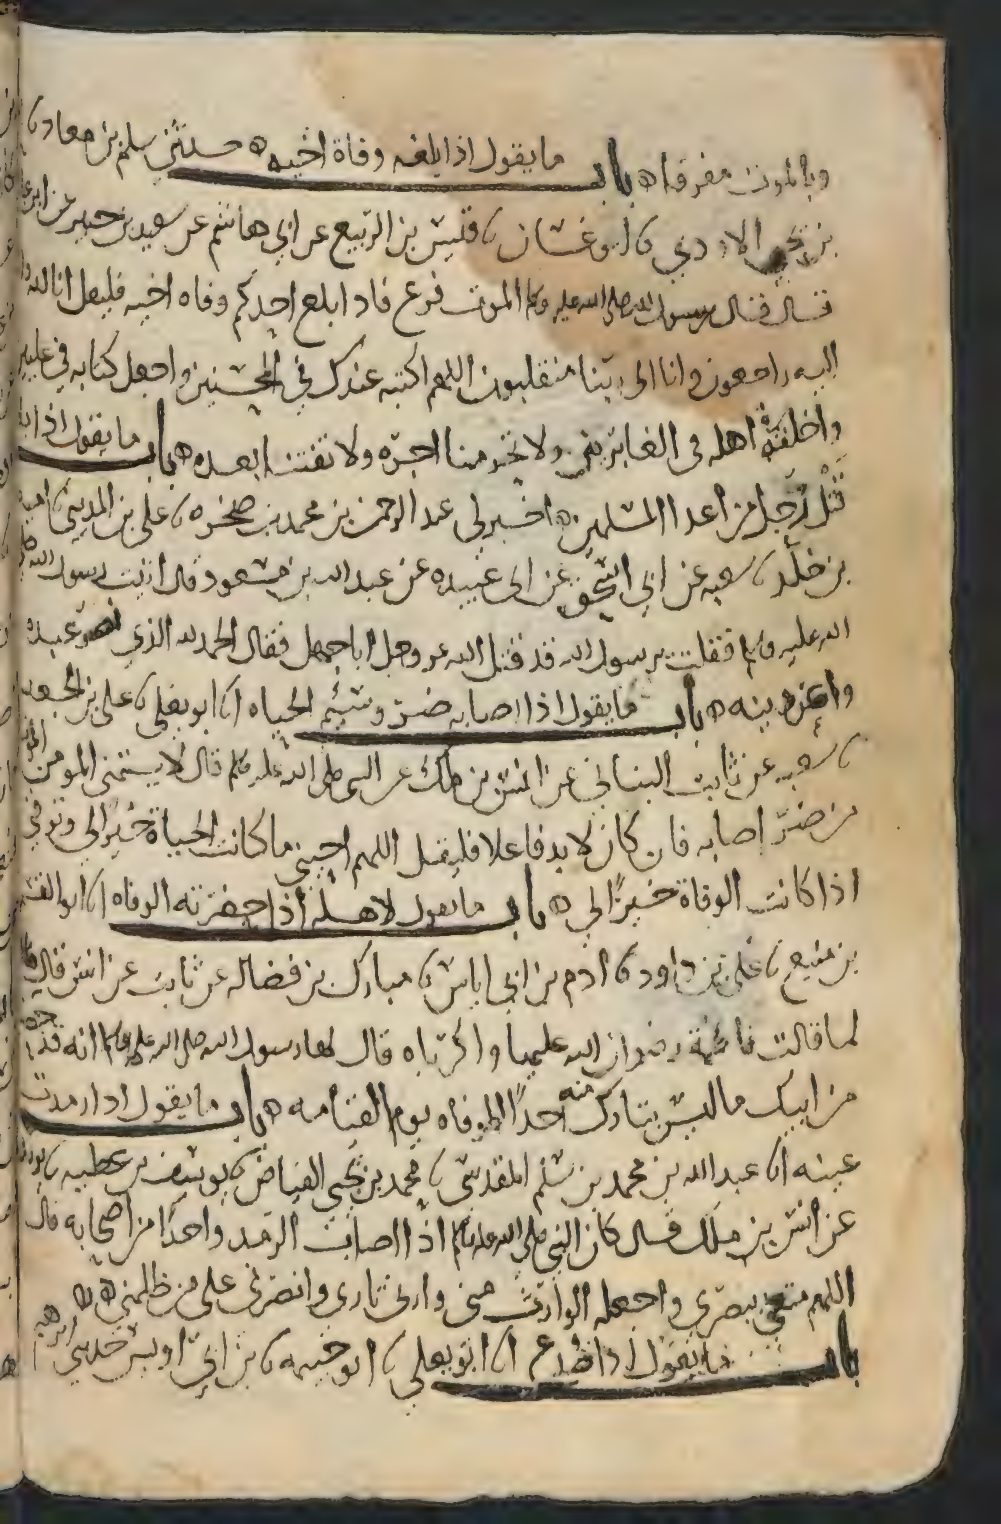 وبالموت مفرقا ه باب ما يقول اذا بلغه وفاة اخيه ه حدثني سلم بن معاد ں
بن يحيى الاودي ں ابو غسان ں قيس بن الربيع عن ابي هاشم عن سعيد بن جبير عن ابن
قال قال رسول الله صلى الله عليه وسلم الموت فزع فاذا بلغ احدكم وفاه اخيه فليقل انا لله وا
اليه راجعون وانا الى ربنا منقلبون اللهم اكتبه عندك في المحسنين واجعل كتابه في عليين
واخلفه اهله في الغابرين ولا تحرمنا اجره ولا تفتنا بعده ه باب ما يقول اذا
قتل رجل من اعدا المسلمين ه اخبرني عبد الرحمن بن محمد بن صخره ں علي بن المديني ں اميه
بن خلد ں سعبه عن ابي اسحق عن ابي عبيده عن عبد الله بن مسعود قال اتيت رسول الله صلى
الله عليه وسلم فقلت يرسول الله قد قتل الله عز وجل ابا جهل فقال الحمد لله الذي نصر عبده
واعز دينه ه باب ما يقول اذا اصابه ضر وسئم الحياه انا ابو يعلى ں علي بن الجعد
ں سعبه عن ثابت البناني عن انس بن ملك عن النبي صلى الله عليه وسلم قال لا يتمنى المومن الموت
من ضر اصابه فان كان لا بد فاعلا فليقل اللهم احيني ما كانت الحياة خيرا لي وتوفني
اذا كانت الوفاة خيرا لي ه باب ما يقول لاهله اذا حضرته الوفاه انا ابو القسم
بن منيع ں علي بن داود ں ادم بن ابي اياس ں مبارك بن فضاله عن ثابت عن انس قال
لما قالت فاطمة رضوان الله عليها واكرباه قال لها رسول الله صلى الله عليه وسلم انه قد حضر
من ابيك ما ليس بتارك منه احدا الموفاه يوم القيامه ه باب ما يقول اذا رمدت
عينه انا عبد الله بن محمد بن سلم المقدسي ں محمد بن يحيى الفياض ں يوسف بن عطيه ں
عن انس بن ملك قال كان النبي صلى الله عليه وسلم اذا اصاب الرمد واحدا من اصحابه قال
اللهم متعني ببصري واجعله الوارث مني وارني ثاري وانصرني على من ظلمني ه
باب ما يقول اذا صدع انا ابو يعلى ں ابو خيثمه ں بن ابي اويس حدثني ابرهيم